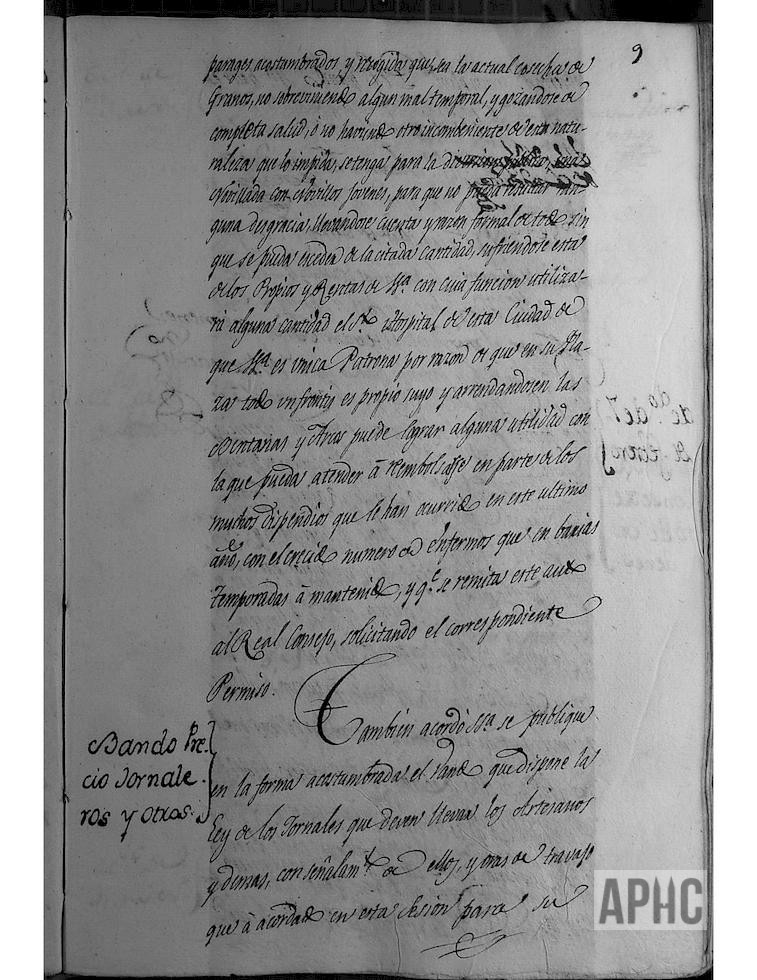 9
parages acostumbrados, y recogida que sea la actual cosecha de
Granos, no sobreviniendo algun mal temporal, y gozandose de
completa salud, ò no haviendo otro incombeniente de esta natu-
raleza que lo impida, se tenga para la
Novillada con Novillos Jovenes, para que no pueda resultar nin-
guna desgracia, llevandose cuenta y razon formal de todo, sin
que se pueda exceder de la citada Cantidad, sufriendose esta
de los Propios y Rentas de Sª. con cuia funcion utiliza-
rà alguna cantidad el Sto. Hospital de esta Ciudad de
que Sª. es unica Patrona por razon de que en su Pla-
za todo un frontis es propio suyo y arrendandosen las
Ventanas y Arcos puede lograr alguna utilidad con
la que pueda atender à reembolsarse en parte de los
muchos dispendios que le han ocurrido en este ultimo
año, con el crecido numero de Enfermos que en barias
Temporadas à mantenido, y qe. se remita este auto
al Real Consejo, solicitando el correspondiente
Permiso.
Tambien acordò SSª. se publique
Bando Pre-
cio Jornale-
ros y otros.
en la forma acostumbrada el Vando que dispone la
Ley de los Jornales que deven llevar los Artesanos
y demas, con señalamto. de ellos, y oras de travajo
que à acordado en esta Sesion para su
APHC